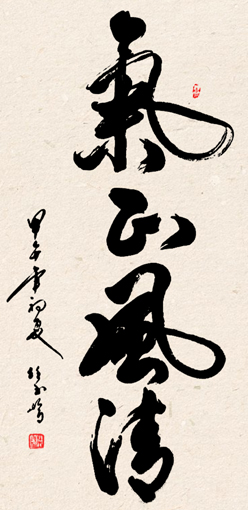 氣正風清
甲午年初夏